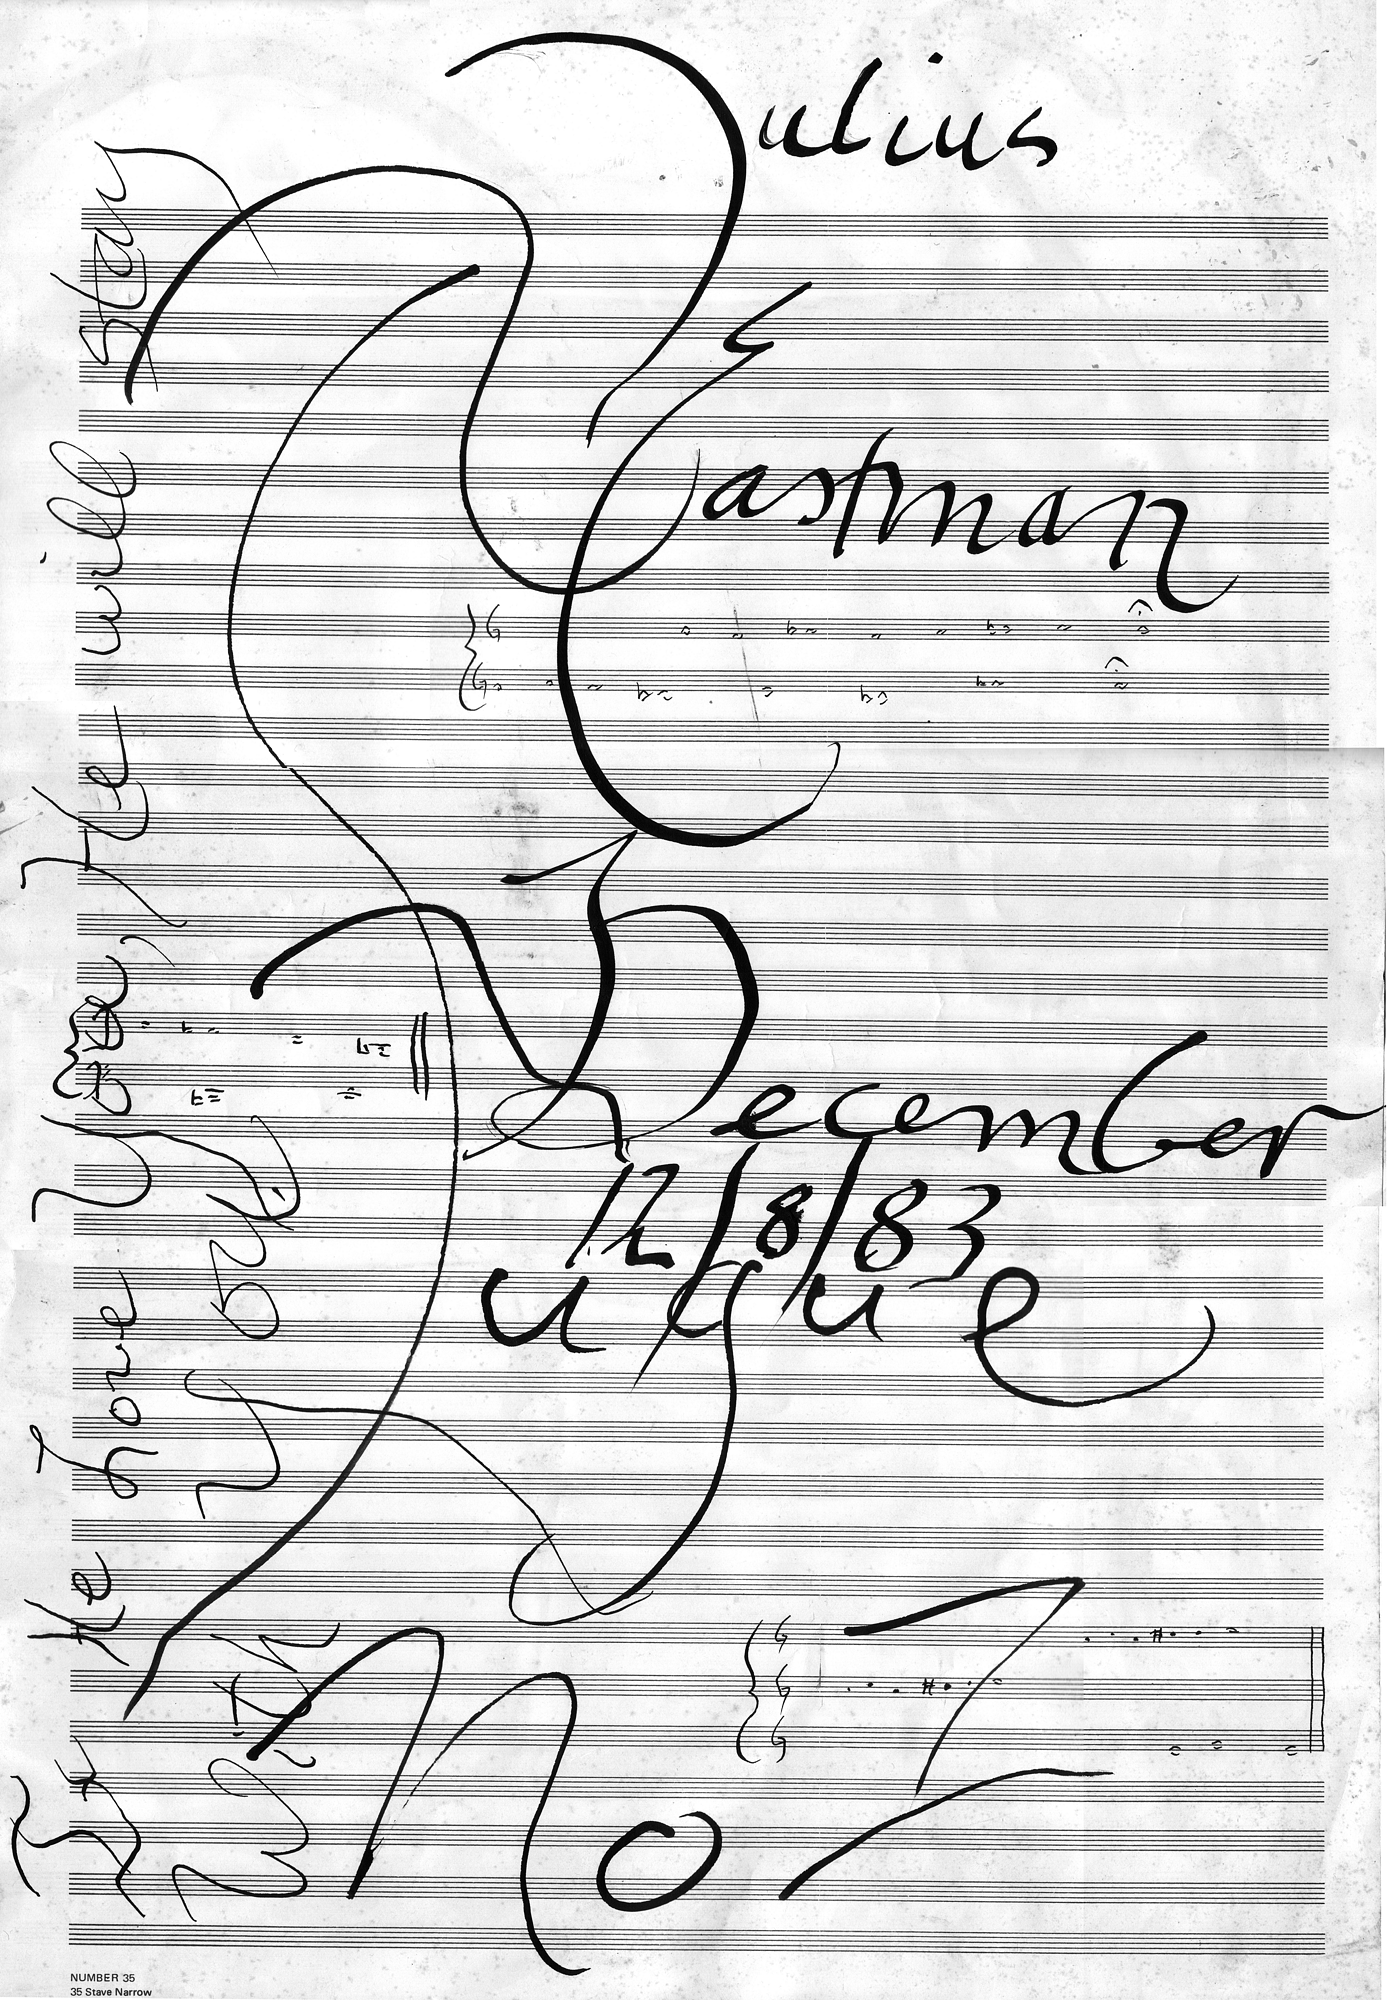 Julius
Eastman
December
12/8/83
Fugue
No 7
If He Love You, He will stay
with You
NUMBER 35
35 Stave Narrow